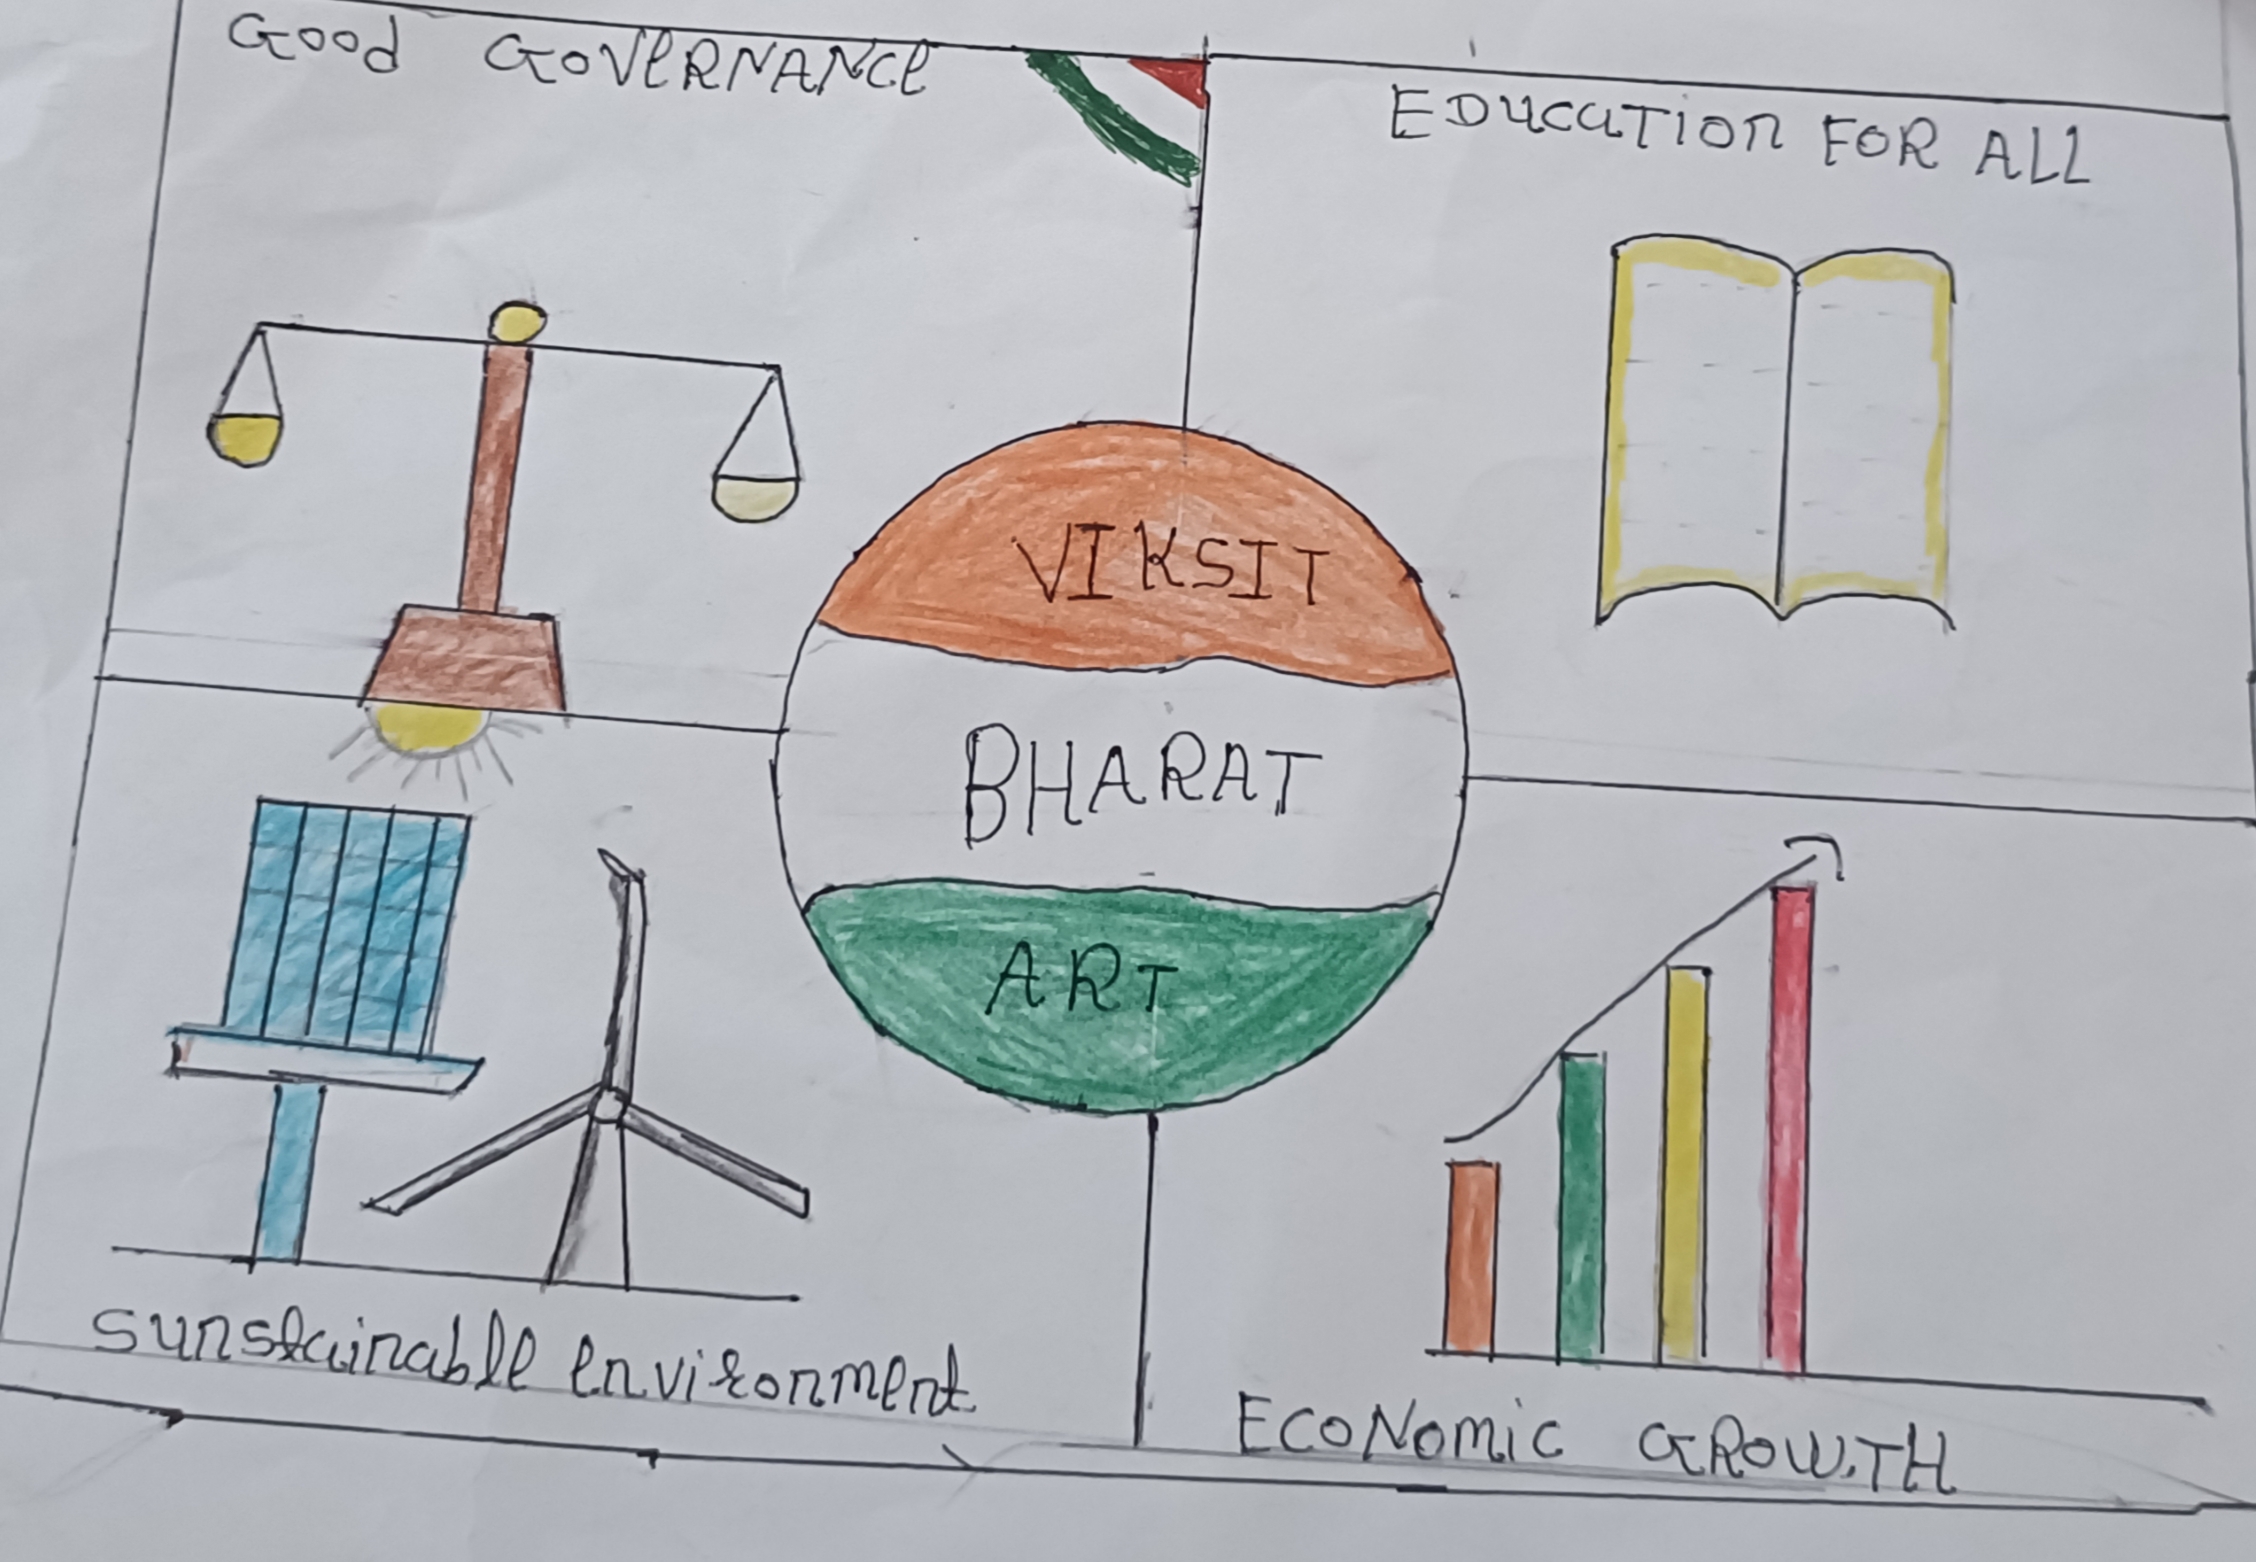 Good GOVERNANCE
EDUCATION FOR ALL
VIKSIT
BHARAT
ART
Sunstainable environment
ECONOMIC GROWTH